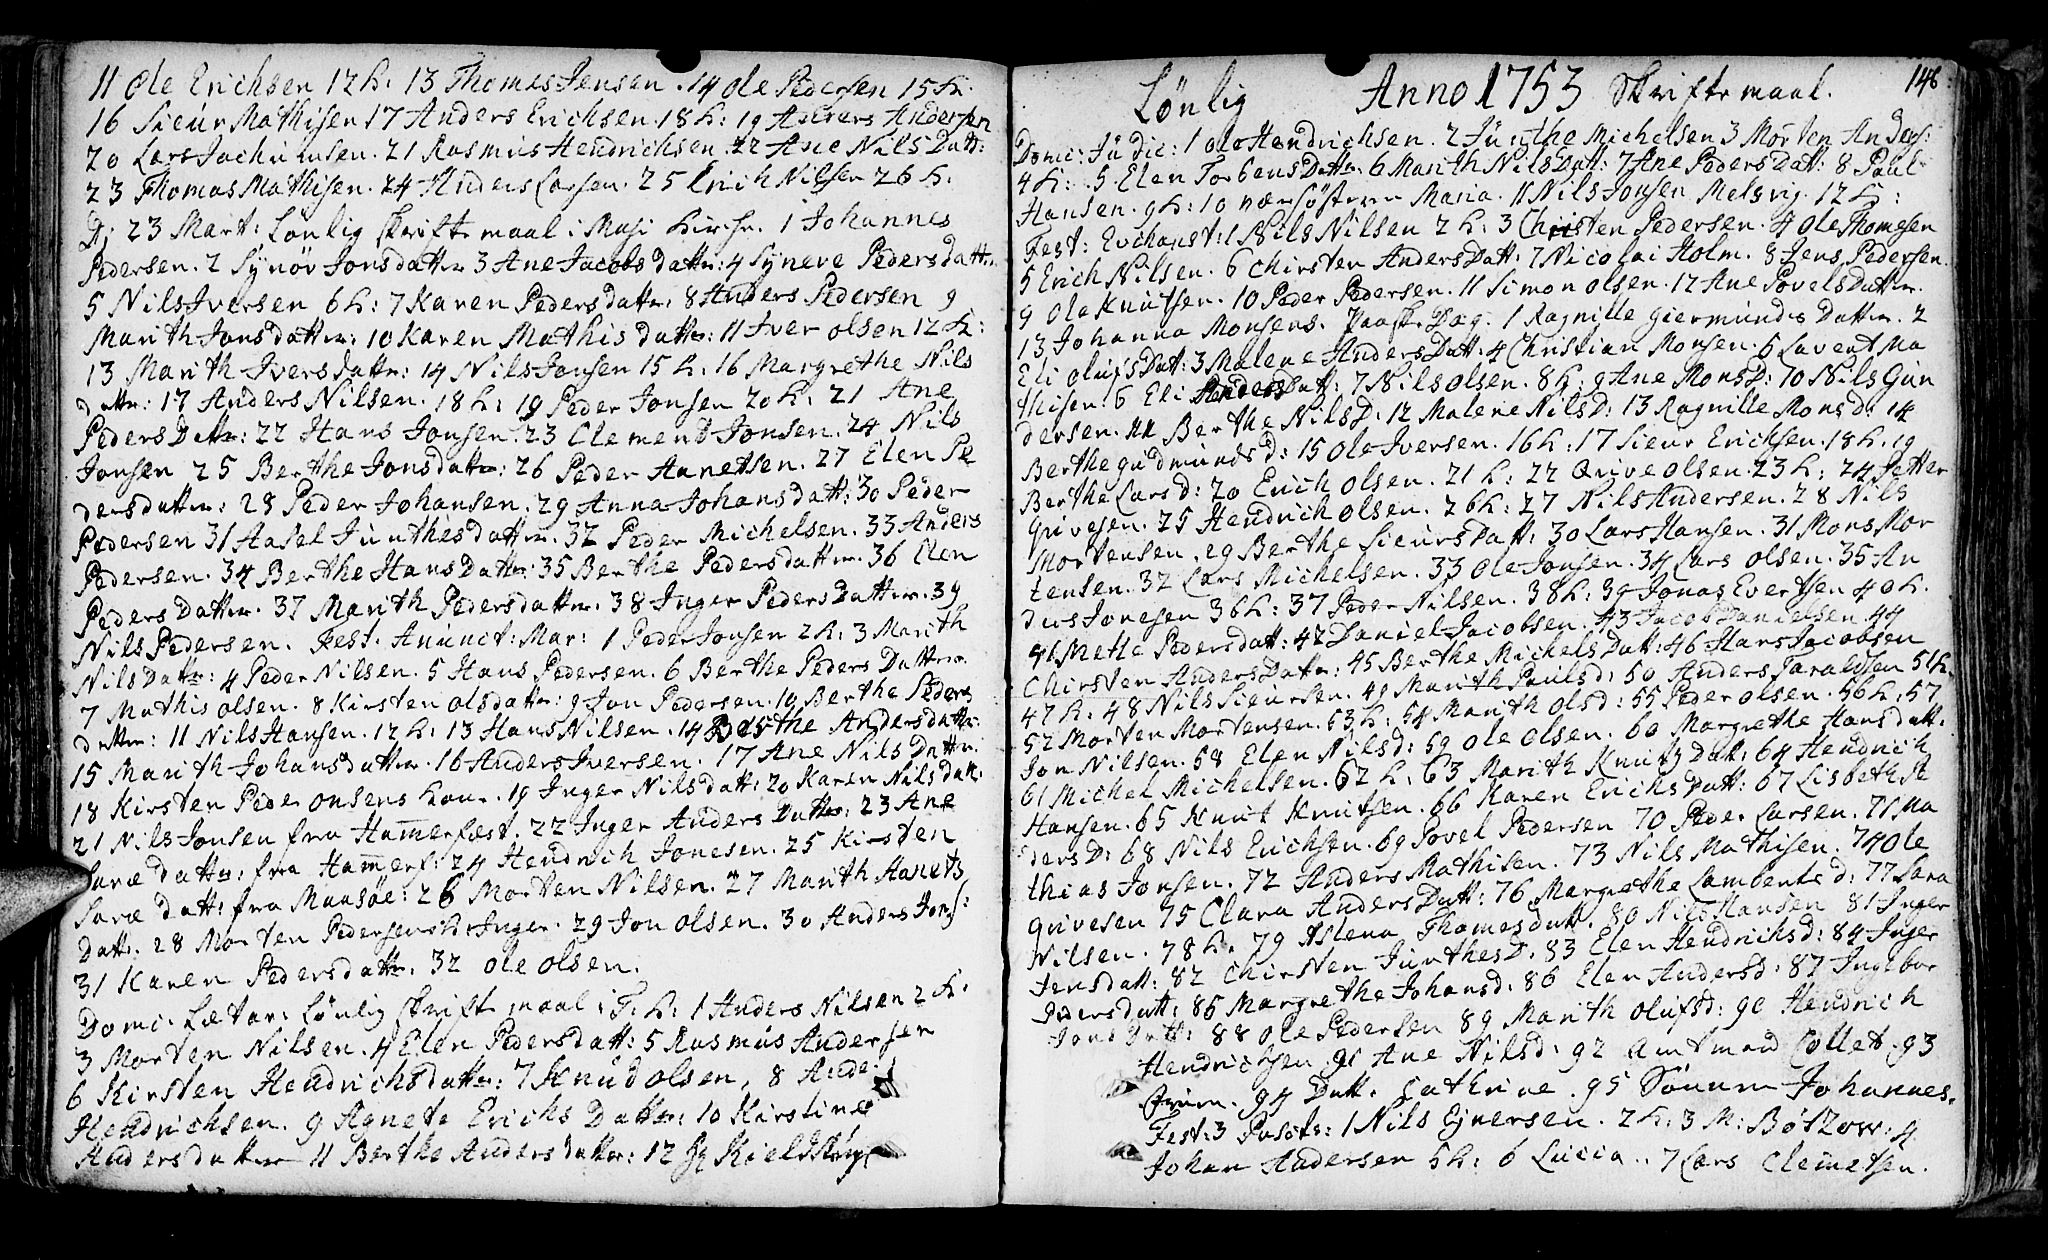 11 Ole Erichsen 12 h: 13 Thomas Jensen. 14 Ole Pedersen 15 h.
16 Sieur Mathisen 17 Anders Erichsen. 18 h: 19 Anders Andersen
20 Lars Jochumsen. 21 Rasmus Hendrichsen 22 Ane Nils Datt:
23 Thomas Mathisen. 24 Anders Larsen. 25 Erich Nilsen 26 h.
D. 23 Mart: Lønlig skriftemaal i Masi Kirche. 1 Johannes
Pedersen. 2 Synøv Jonsdatter 3 Ane Jacobs datter: 4 Syneve Pedersdatter.
5 Nils Iversen 6 h: 7 Karen Pedersdatter: 8 Anders Pedersen 9
Marith Jonsdatter: 10 Karen Mathisdatter: 11 Iver olsen 12 h:
13 Marith Iversdatter: 14 Nils Jonsen 15 h: 16 Margrethe Nils
datter: 17 Anders Nilsen. 18 h: 19 Peder Jonsen 20 h: 21 Ane
Peders Datter: 22 Hans Jonsen. 23 Clement Jonsen. 24 Nils
Jonsen 25 Berthe Jonsdatter: 26 Peder Aanetsen. 27 Elen Pe
dersdatter: 28 Peder Johansen. 29 Anna Johansdatt: 30 Peder
Pedersen 31 Aasel Junthesdatter. 32 Peder Michelsen. 33 Anders
Pedersen. 34 Berthe Hans Datter: 35 Berthe Pedersdatter. 36 Elen
Peders Datter. 37 Marith Pedersdatter. 38 Inger Peders Datter. 39
Nils Pedersen. Fest: Annunct: Mar: 1 Peder Jonsen 2 h: 3 Marith
Nils Datter: 4 Peder Nilsen. 5 Hans Pedersen. 6 Berthe Peders Datter.
7 Mathis olsen. 8 Kirsten olsdatter: 9 Jon Pedersen. 10 Berthe Peders
datter: 11 Nils Hansen. 12 h: 13 Hans Nilsen. 14 Berthe Andersdatter
15 Marith Johansdatter. 16 Anders Iversen. 17 Ane Nils Datter.
18 Kirsten Peder onsens kone. 19 Inger Nilsdatt: 20 Karen Nilsdatt:
21 Nils Jonsen fra Hamerfæst. 22 Inger Anders Datter: 23 Ane
Saræ datter: fra Hamerf: 24 Hendrich Jonesen. 25 Kirsten
Saræ datt: fra Maasøe: 26 Morten Nilsen. 27 Marith Aanets
Datt. 28 Morten Pedersens h: Inger. 29 Jon olsen. 30 Anders Jons:
31 Karen Pedersdatter. 32 Ole olsen.
Domi: Lætar: Lønlig skriftemaal i T. K: 1 Anders Nilsen 2 h.
3 Morten Nilsen. 4 Elen Pedersdatt: 5 Rasmus Andersen
6 Kirsten Hendrichsdatter: 7 Knud olsen, 8 Ande
Hendrichsen. 9 Agnete Erichs Datter: 10 Kirstine
Andersdatter 11 Berthe Andersdatter: 12
Lønlig Anno 1753 Skriftemaal. 148
Domi: Judic: 1 ole Hendrichsen. 2 Junthe Michelsen 3 Morten Anders:
4 h: 5 Elen Torbens Datter: 6 Marith Nils Datt: 7 Ane Peders Datt: 8 Paul
Hansen. 9 h: 10 værsøsteren Maria. 11 Nils Jonsen Melsvig. 12 h:
Fest: Euchar: 1 Nils Nilsen 2 h: 3 Christen Pedersen. 4 Ole Thomesen
5 Erich Nilsen. 6 Chirsten Anders Datt: 7 Nicolai Holm. 8 Jens Pedersen.
9 Ole Knutsen. 10 Peder Pedersen. 11 Simon olsen. 12 Ane Povels Datter.
13 Johanna Monsens. Paaske Dag. 1 Ragnille Giermunds Datter. 2
Eli olufs Datt: 3 Malene Anders Datt: 4 Christian Monsen. 5 Lavent Ma
thisen. 6 Eli Anders Datt: 7 Nils olsen. 8 h: 9 Ane Mons D: 10 Nils Gun
dersen. 11 Berthe Nils D: 12 Malene Nils D: 13 Ragnille Mons d: 14
Berthe Gudmunds d: 15 Ole Iversen. 16 h: 17 Sieur Erichsen. 18 h. 19
Berthe Lars d: 20 Erich olsen. 21 h: 22 Qvive olsen. 23 h: 24 Petter
Qvivesen. 25 Hendrich olsen. 26 h: 27 Nils Andersen. 28 Nils
Mortensen. 29 Berthe Sieurs Datt: 30 Lars Hansen. 31 Mons Mor
tensen. 32 Lars Michelsen. 33 Ole Jonsen. 34 Lars olsen. 35 An
ders Jonesen 36 h: 37 Peder Nilsen. 38 h: 39 Jonas Evertsen 40 h.
41 Mette Pedersdatt: 42 Daniel Jacobsen. 43 Jacob Danielsen. 44
Chirsten Anders Datter: 45 Berthe Michels Datt: 46 Hans Jacobsen
47 h: 48 Nils Sieursen. 49 Marith Pauls d: 50 Anders Taraldsen 51 h.
52 Morten Mortensen. 53 h: 54 Marith ols d: 55 Peder olsen. 56 h: 57
Jon Nilsen. 58 Elen Nils d: 59 Ole Olsen. 60 Margrethe Hansdatt.
61 Michel Michelsen. 62 h: 63 Marith Knuts Datt: 64 Hendrich
Hansen. 65 Knut Knutsen. 66 Karen Erichs Datt: 67 Lisbeth Pe
ders D: 68 Nils Erichsen. 69 Povel Pedersen 70 Peder Larsen. 71 Ma
thias Jonsen. 72 Anders Mathisen. 73 Nils Mathisen. 74 Ole
Qvivesen 75 Clara Anders Datt: 76 Margrethe Lamberts d: 77 Sara
Nilsen. 78 h. 79 Aslena Thomesdatt. 80 Nils Hansen 81 Inger
Jensdatt: 82 Chirsten Junthes D: 83 Elen Hendrichs d: 84 Inger
Iversdatt: 85 Margrethe Johans d: 86 Elen Anders d: 87 Ingebor
Jons Datt: 88 Ole Pedersen 89 Marith olufs d: 90 Hendrich
Hendrichsen 91 Ane Nils d: 92 Amtmand Collet. 93
Fruen. 94 Datt. Cathrine. 95 Sønnen Johannes.
Fest: 3 Pasch: 1 Nils Ejversen. 2 h: 3 M: Bützow: 4
Johan Andersen 5 h: 6 Lucia.. 7 Lars Clemetsen.